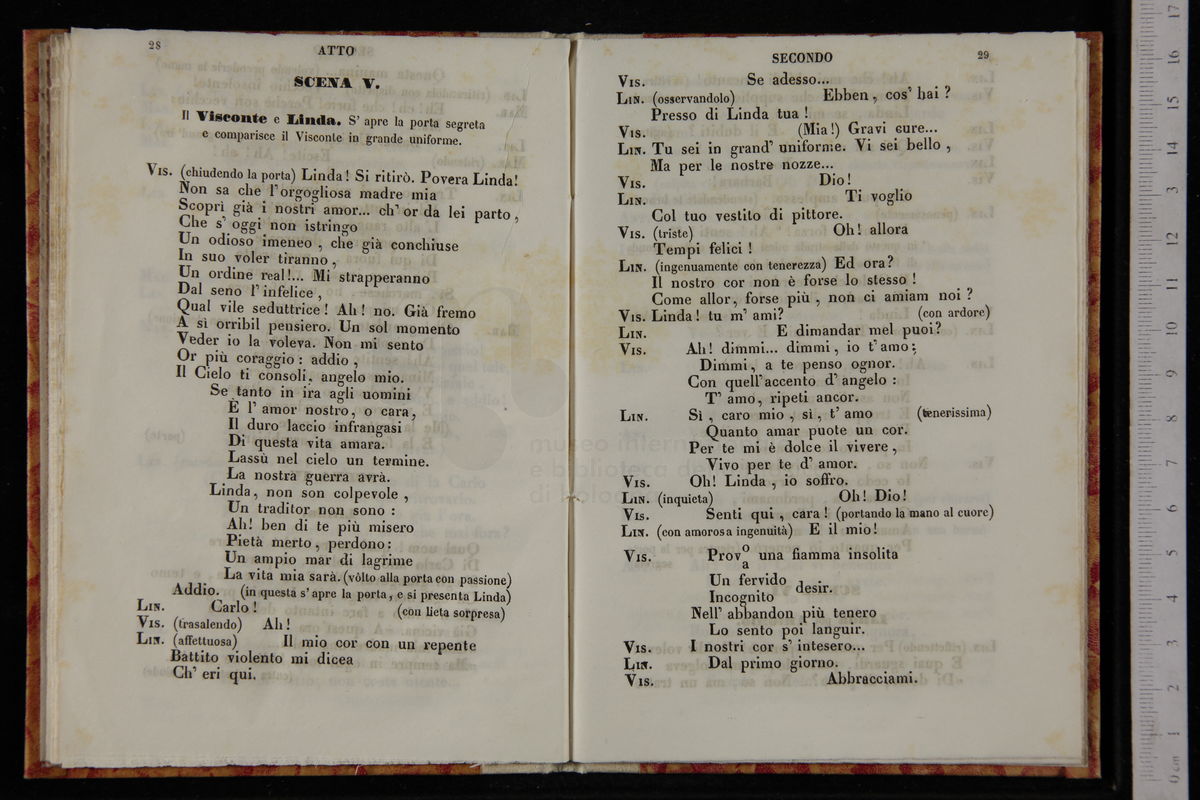 28
ATTO
SCENA V.
Il Visconte e Linda. S' apre la porta segreta
e comparisce il Visconte in grande uniforme.
Vis. (chiudendo la porta) Linda! Si ritirò. Povera Linda!
Non sa che l'orgogliosa madre mia
Scoprì già i nostri amor... ch' or da lei parto,
Che s' oggi non istringo
Un odioso imeneo, che già conchiuse
In suo voler tiranno,
Un ordine real!... Mi strapperanno
Dal seno l'infelice,
Qual vile seduttrice! Ah! no. Già fremo
A sì orribil pensiero. Un sol momento
Veder io la voleva. Non mi sento
Or più coraggio: addio,
Il Cielo ti consoli, angelo mio.
Se tanto in ira agli uomini
È l' amor nostro, o cara,
Il duro laccio infrangasi
Di questa vita amara.
Lassù nel cielo un termine.
La nostra guerra avrà.
Linda, non son colpevole,
Un traditor non sono:
Ah! ben di te più misero
Pietà merto, perdono:
Un ampio mar di lagrime
La vita mia sarà. (vôlto alla porta con passione)
Addio. (in questa s' apre la porta, e si presenta Linda)
Lin. Carlo! (con lieta sorpresa)
Vis. (trasalendo) Ah!
Lin. (affettuosa) Il mio cor con un repente
Battito violento mi dicea
Ch' eri qui.
SECONDO
29
Vis. Se adesso...
Lin. (osservandolo) Ebben, cos' hai?
Presso di Linda tua!
Vis. (Mia!) Gravi cure...
Lin. Tu sei in grand' uniforme. Vi sei bello,
Ma per le nostre nozze...
Vis. Dio!
Lin. Ti voglio
Col tuo vestito di pittore.
Vis. (triste) Oh! allora
Tempi felici!
Lin. (ingenuamente con tenerezza) Ed ora?
Il nostro cor non è forse lo stesso!
Come allor, forse più, non ci amiam noi?
Vis. Linda! tu m' ami? (con ardore)
Lin. E dimandar mel puoi?
Vis. Ah! dimmi... dimmi, io t' amo:
Dimmi, a te penso ognor.
Con quell'accento d' angelo:
T' amo, ripeti ancor.
Lin. Sì, caro mio, sì, t' amo (tenerissima)
Quanto amar puote un cor.
Per te mi è dolce il vivere,
Vivo per te d' amor.
Vis. Oh! Linda, io soffro.
Lin. (inquieta) Oh! Dio!
Vis. Senti qui, cara! (portando la mano al cuore)
Lin. (con amorosa ingenuità) E il mio!
Vis. Prov o una fiamma insolita
a
Un fervido
desir.
Incognito
Nell' abbandon più tenero
Lo sento poi languir.
Vis. I nostri cor s' intesero...
Lin. Dal primo giorno.
Vis. Abbracciami.
museo intern
e biblioteca de
di bolo